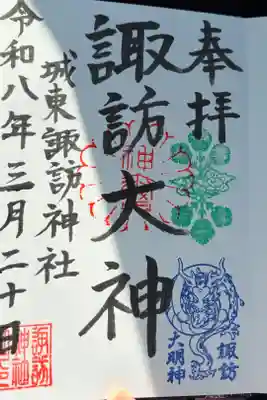 奉拝
諏訪大神
城東諏訪神社
令和八年三月二十日
諏訪
大明神
諏訪
神社